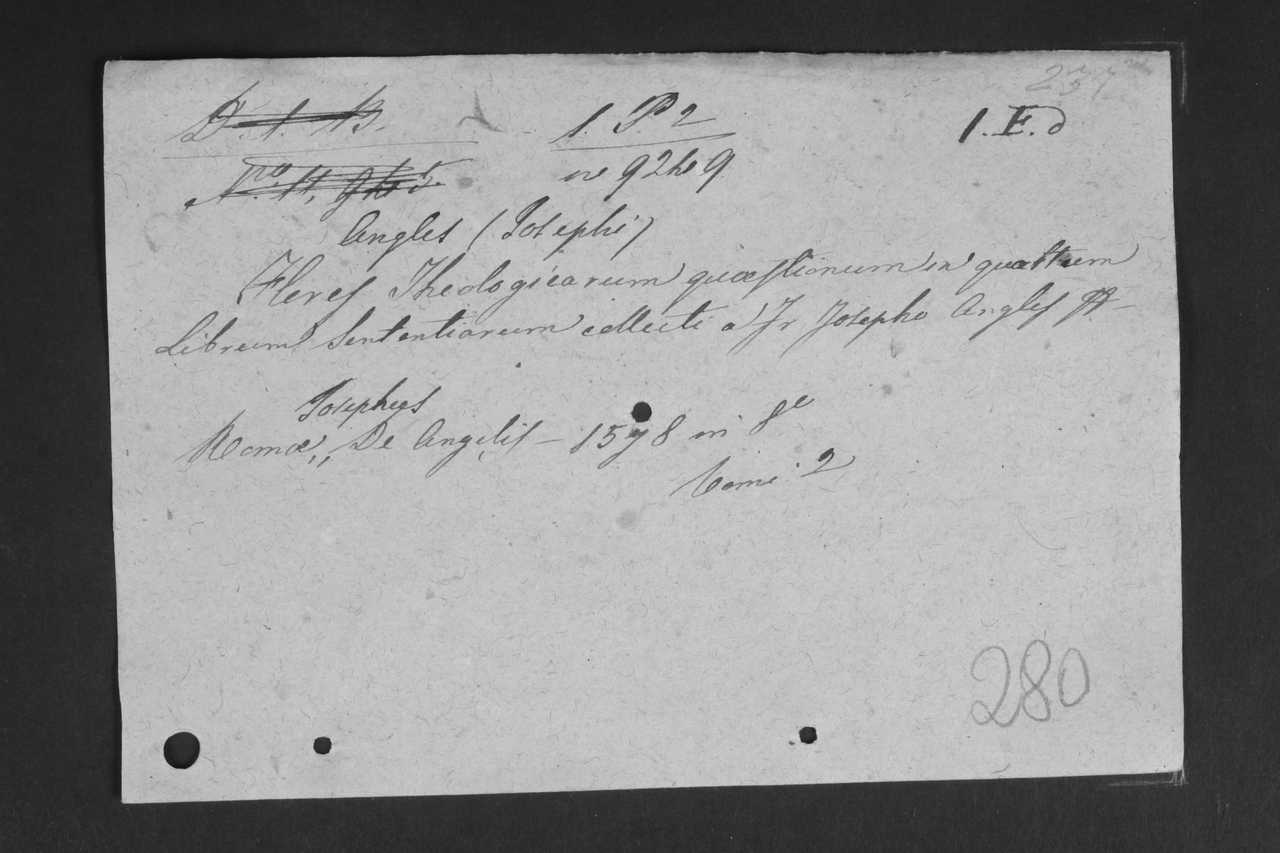 237
D. 1. B.
1. P. 2
1. E. d
Nro. 11,
n 92 to 9
Angles (Josephi)
Flores Theologicarum quæstionum in quartum
Librum Sententiarum collecti a Fr Josepho Angles
Josephus
Romæ,, De Angelis - 1578 in 8º
Tomi 2
280